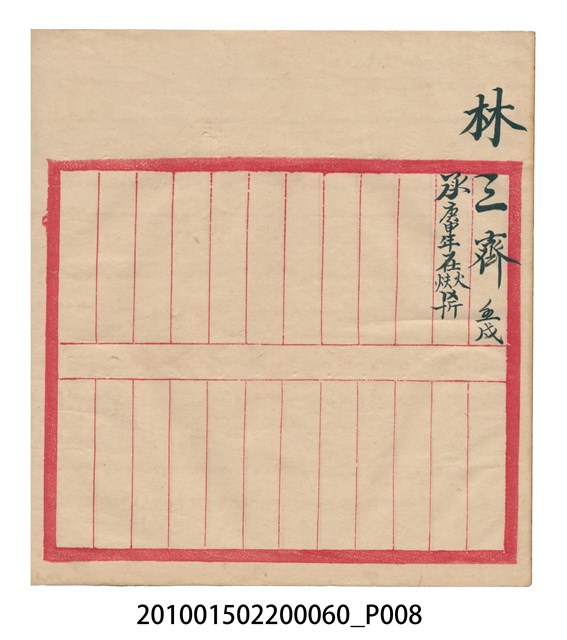 林三齊 壬戌
承庚申年在
201001502200060_P008